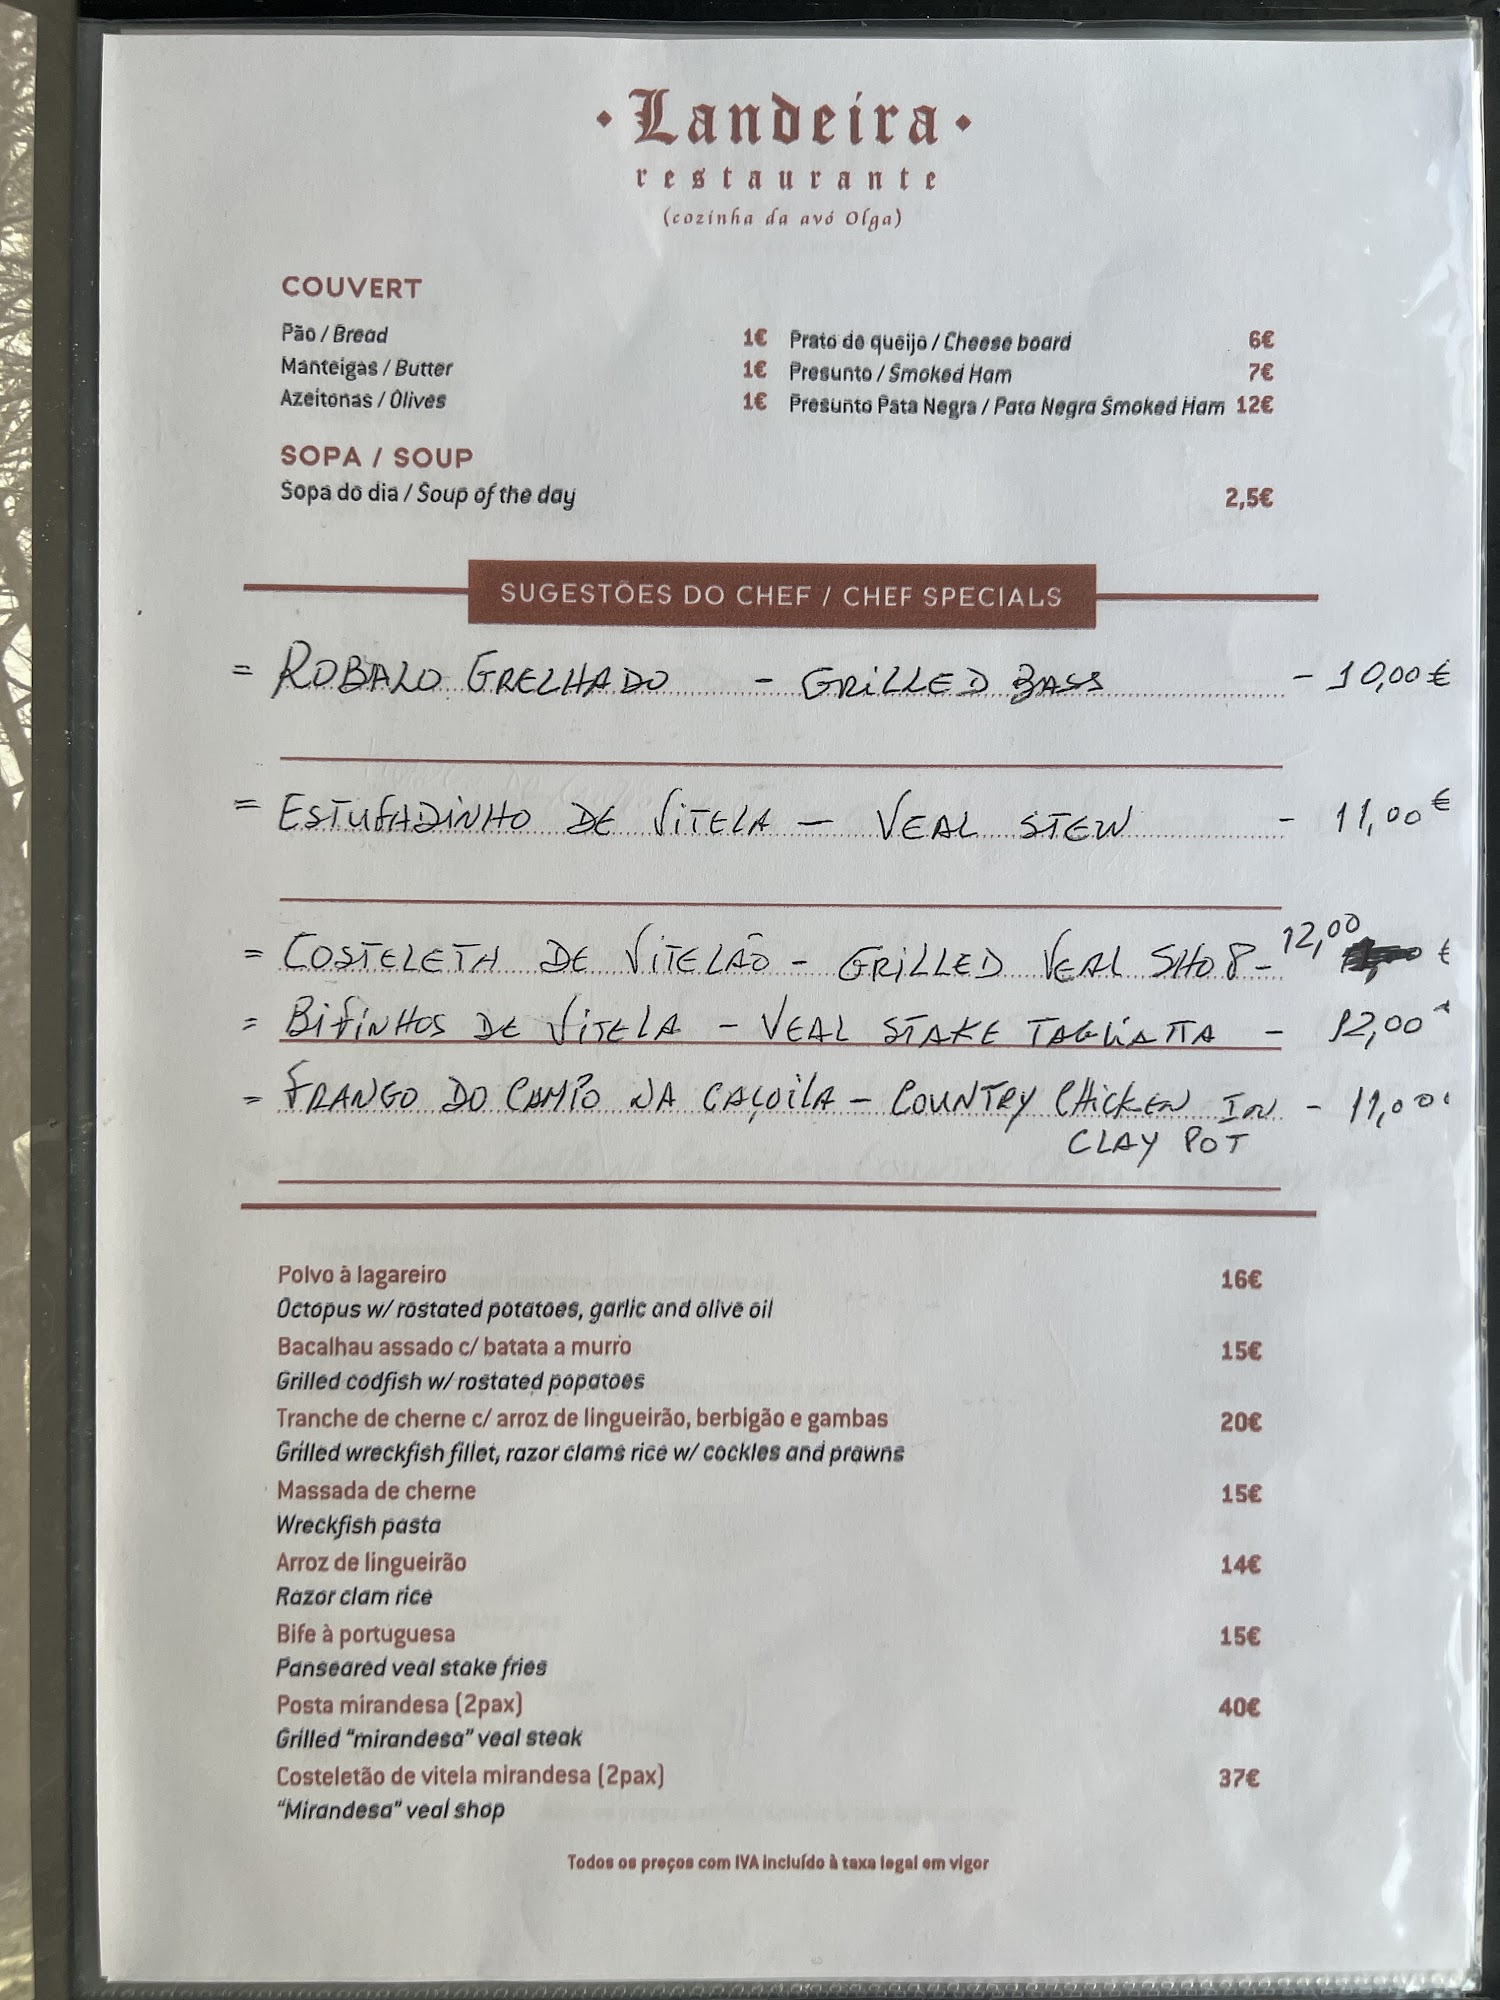 Landeira
restaurante
(cozinha da avó Olga)
COUVERT
Pão / Bread 1€
Manteigas / Butter 1€
Azeitonas / Olives 1€
Prato de queijo / Cheese board 6€
Presunto / Smoked Ham 7€
Presunto Pata Negra / Pata Negra Smoked Ham 12€
SOPA / SOUP
Sopa do dia / Soup of the day 2,5€
SUGESTÕES DO CHEF / CHEF SPECIALS
= ROBALO GRELHADO - GRILLED BASS - 10,00 €
= ESTUFADINHO DE VITELA - VEAL STEW - 11,00 €
= COSTELETA DE VITELÃO - GRILLED VEAL SHOP - 12,00 €
= BIFINHOS DE VITELA - VEAL STAKE TAGLIATTA - 12,00
= FRANGO DO CAMPO NA CAÇOILA - COUNTRY CHICKEN IN - 11,00
CLAY POT
Polvo à lagareiro 16€
Octopus w/ rostated potatoes, garlic and olive oil
Bacalhau assado c/ batata a murro 15€
Grilled codfish w/ rostated popatoes
Tranche de cherne c/ arroz de lingueirão, berbigão e gambas 20€
Grilled wreckfish fillet, razor clams rice w/ cockles and prawns
Massada de cherne 15€
Wreckfish pasta
Arroz de lingueirão 14€
Razor clam rice
Bife à portuguesa 15€
Panseared veal stake fries
Posta mirandesa (2pax) 40€
Grilled "mirandesa" veal steak
Costeletão de vitela mirandesa (2pax) 37€
"Mirandesa" veal shop
Todos os preços com IVA incluído à taxa legal em vigor